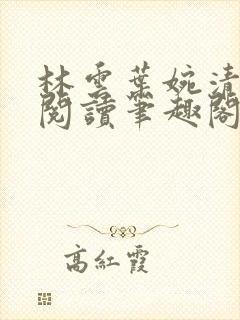 林雲葉婉清
閱讀筆趣閣
高紅霞